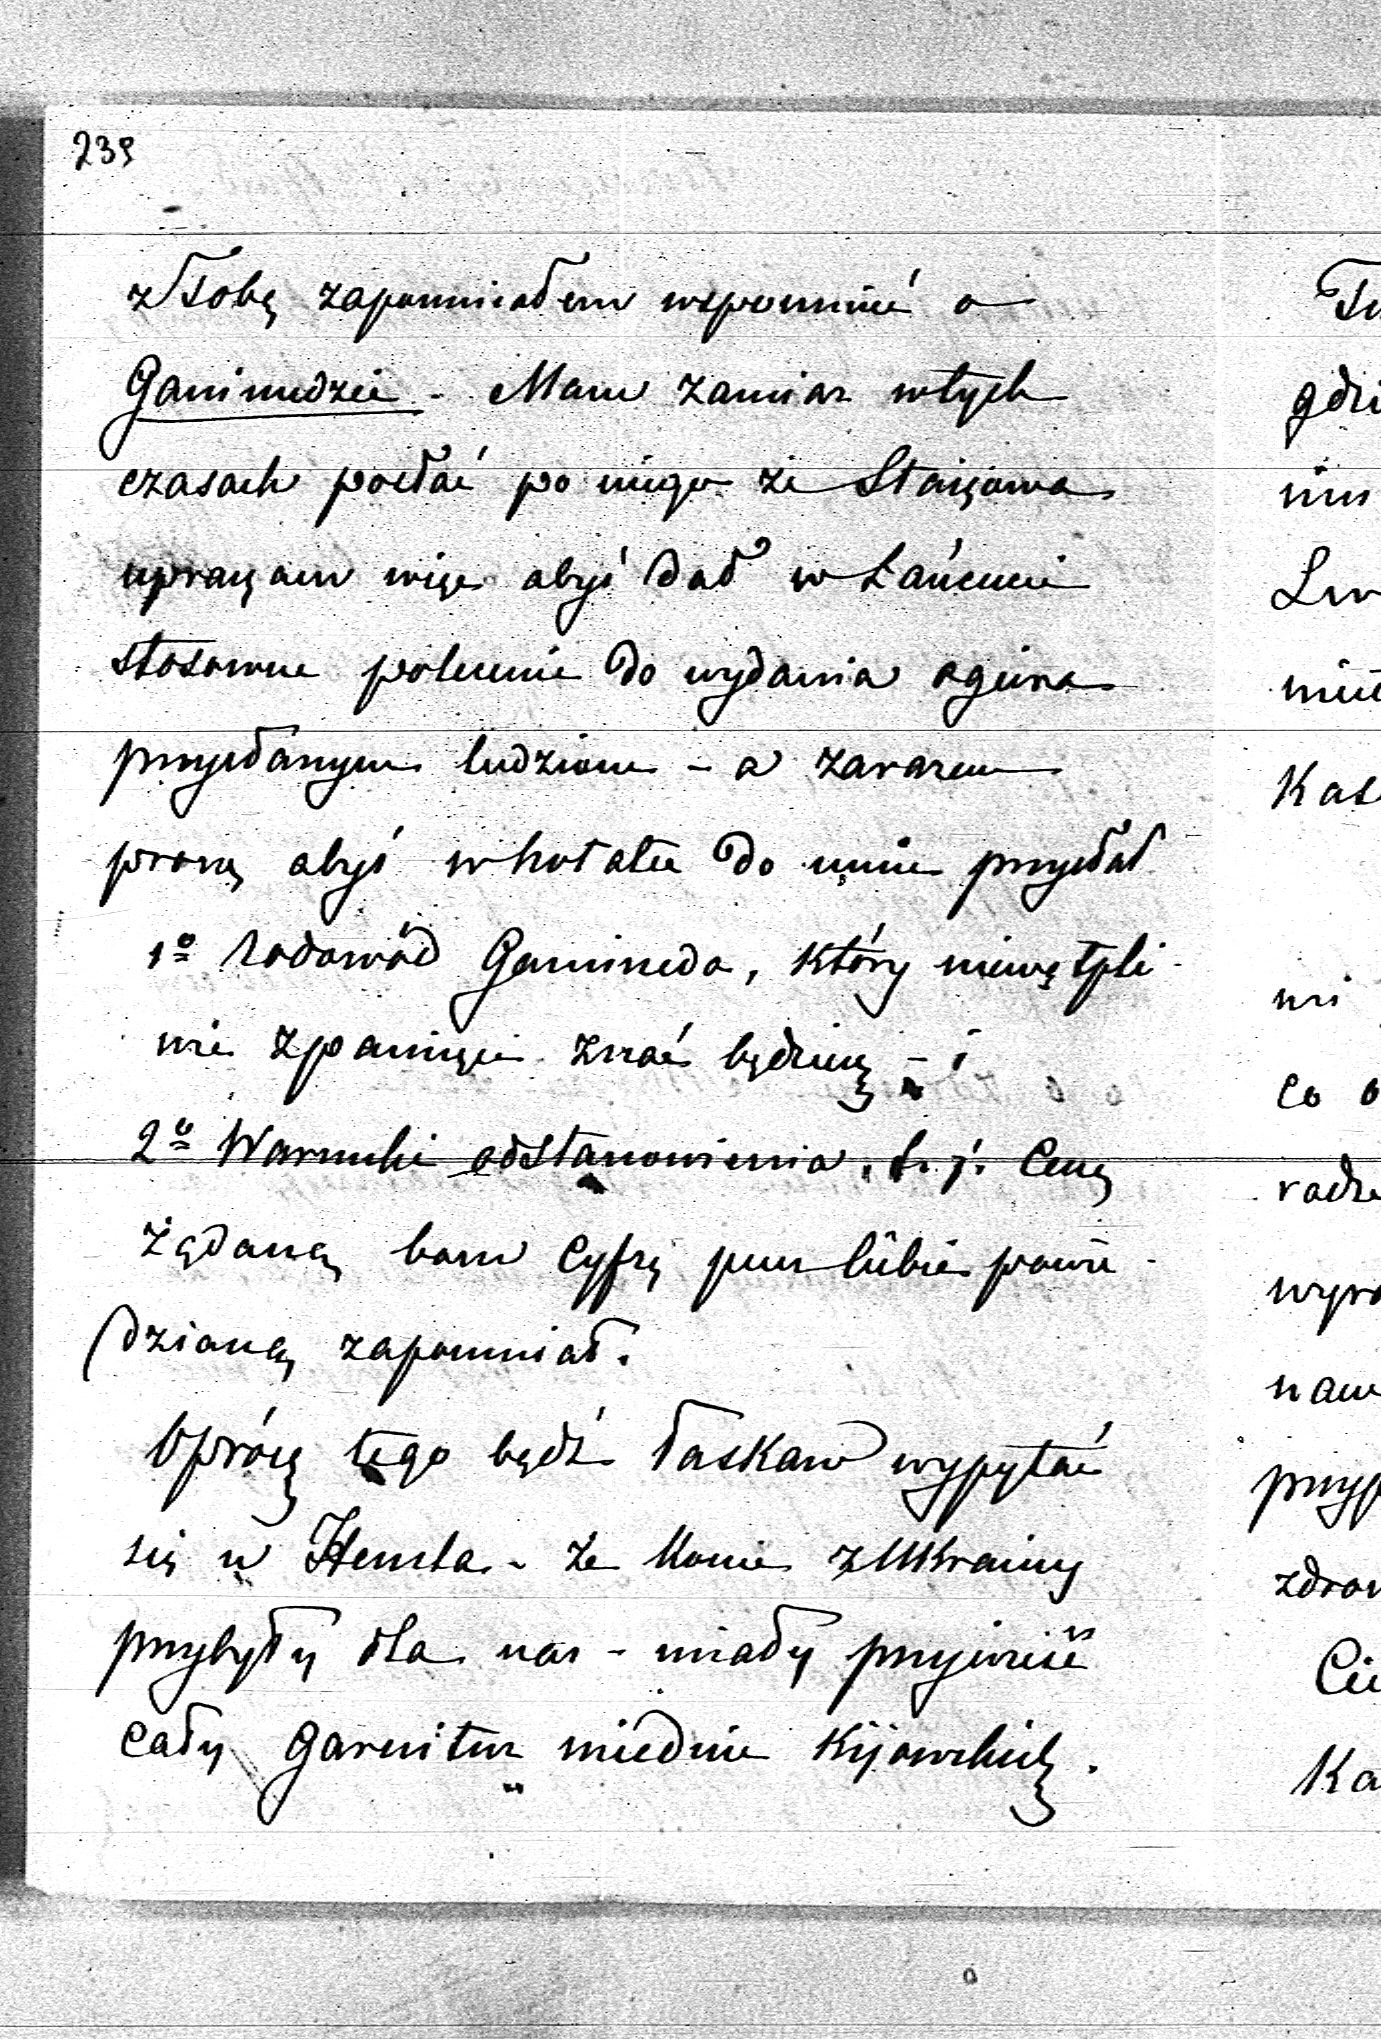 239
z Tobą zapomniałem wspomnić o
Ganimedzie - Mam zamiar w tych
czasach posłać po niego ze Stojowa
upraszam więc abyś dał w Łańcucie
stosowne polecenie do wydania ogiera
przysłanym ludziom - a zarazem
proszę abyś w krótce do mnie przysłał
1º Rodowód Ganimeda, który niewątpli-
wie z pamięci znać będziesz - i
2º Warunki odstanowienia, t. j. Cenę
żądaną bom Cyfrę przez Ciebie powie-
dzianą zapomniał.
Oprócz tego bądź łaskaw wypytać
się u - że Konie z Ukrainy
przybyły dla nas - miały przywieść
cały Garnitur miednic Kijowskich.
Tu
gdzi
Lw
Kas
wi
co o
radz
wyra
nam
przyp
zdrow
Ka